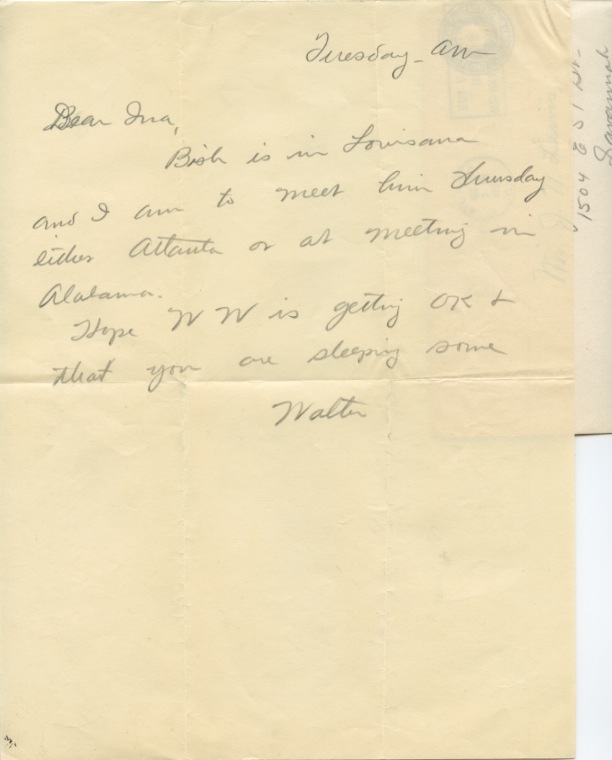 Tuesday - am
Dear Ina,
Bish is in Louisana
and I am to meet him Thursday
either Attanta or at meeting in
Alabama.
Hope WW is getting OK &
that you are sleeping some
Walter
1504 E 51 St -
Savannah